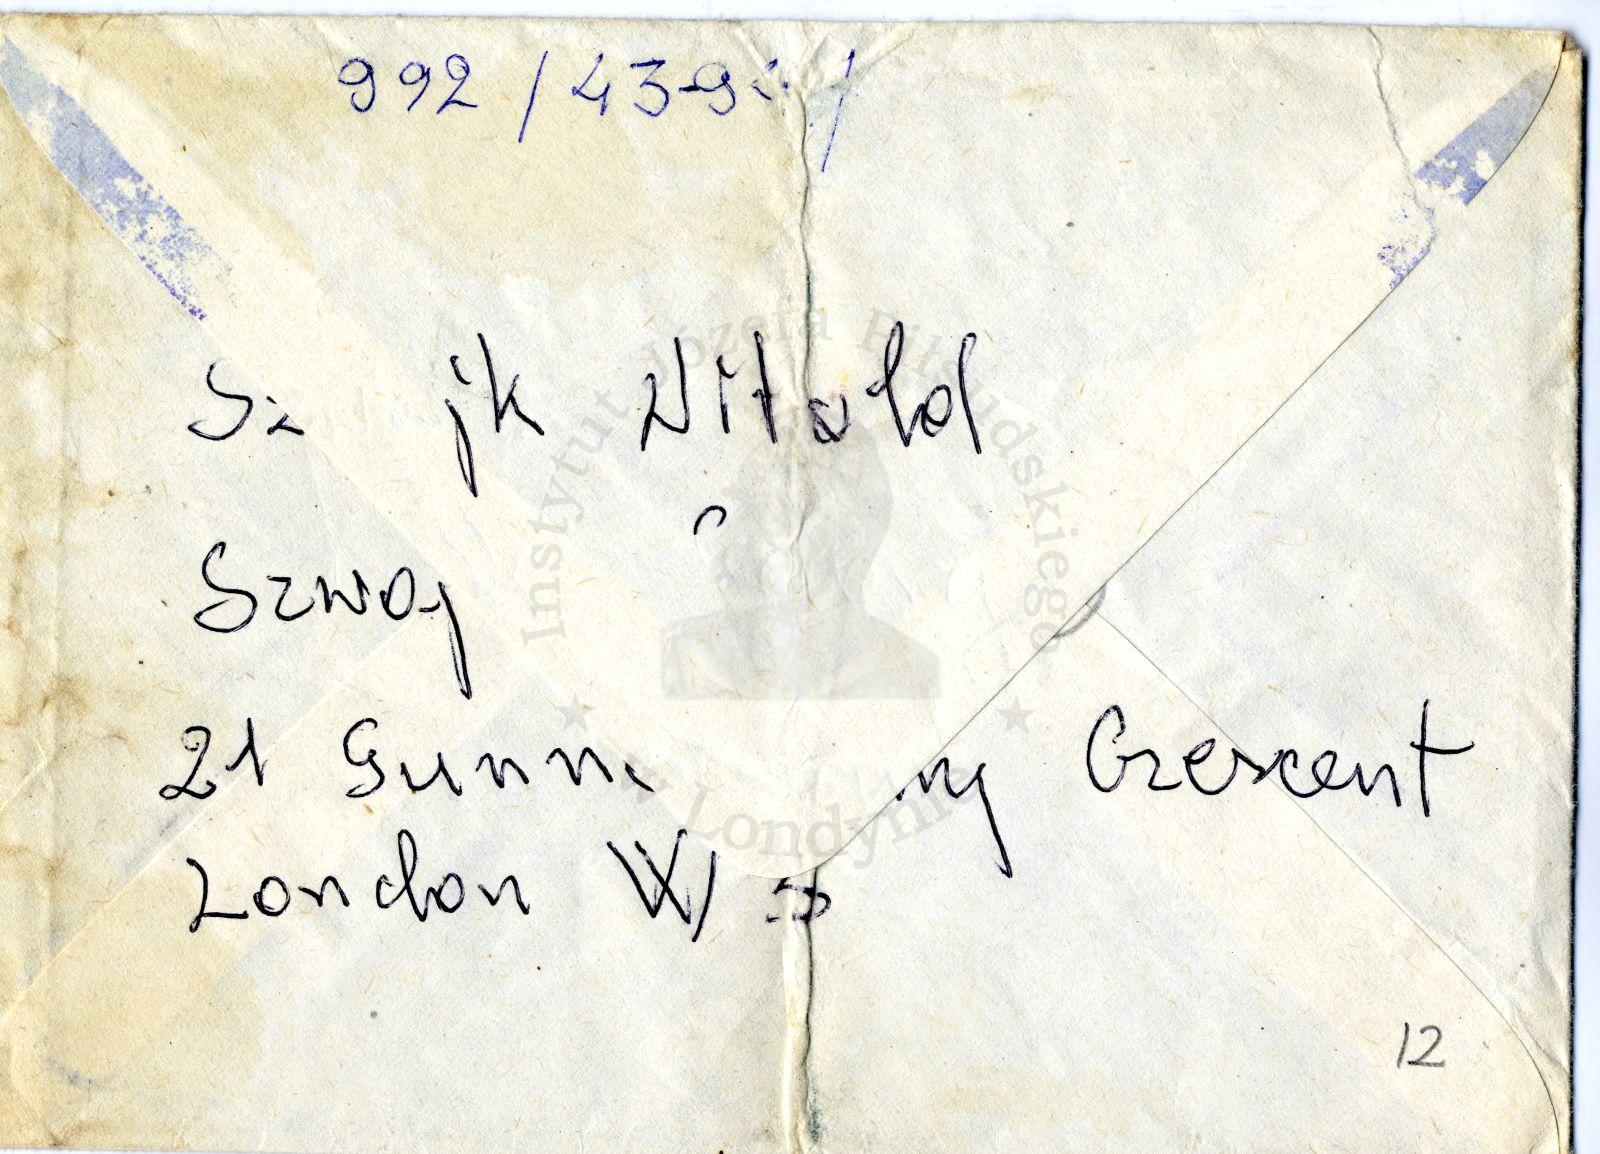 992 / 43-9 /
Sz jk Witold
Szwaj
21 Gunn ny Crescent
London W 5
12
Instytut Józefa Piłsudskiego
w Londynie